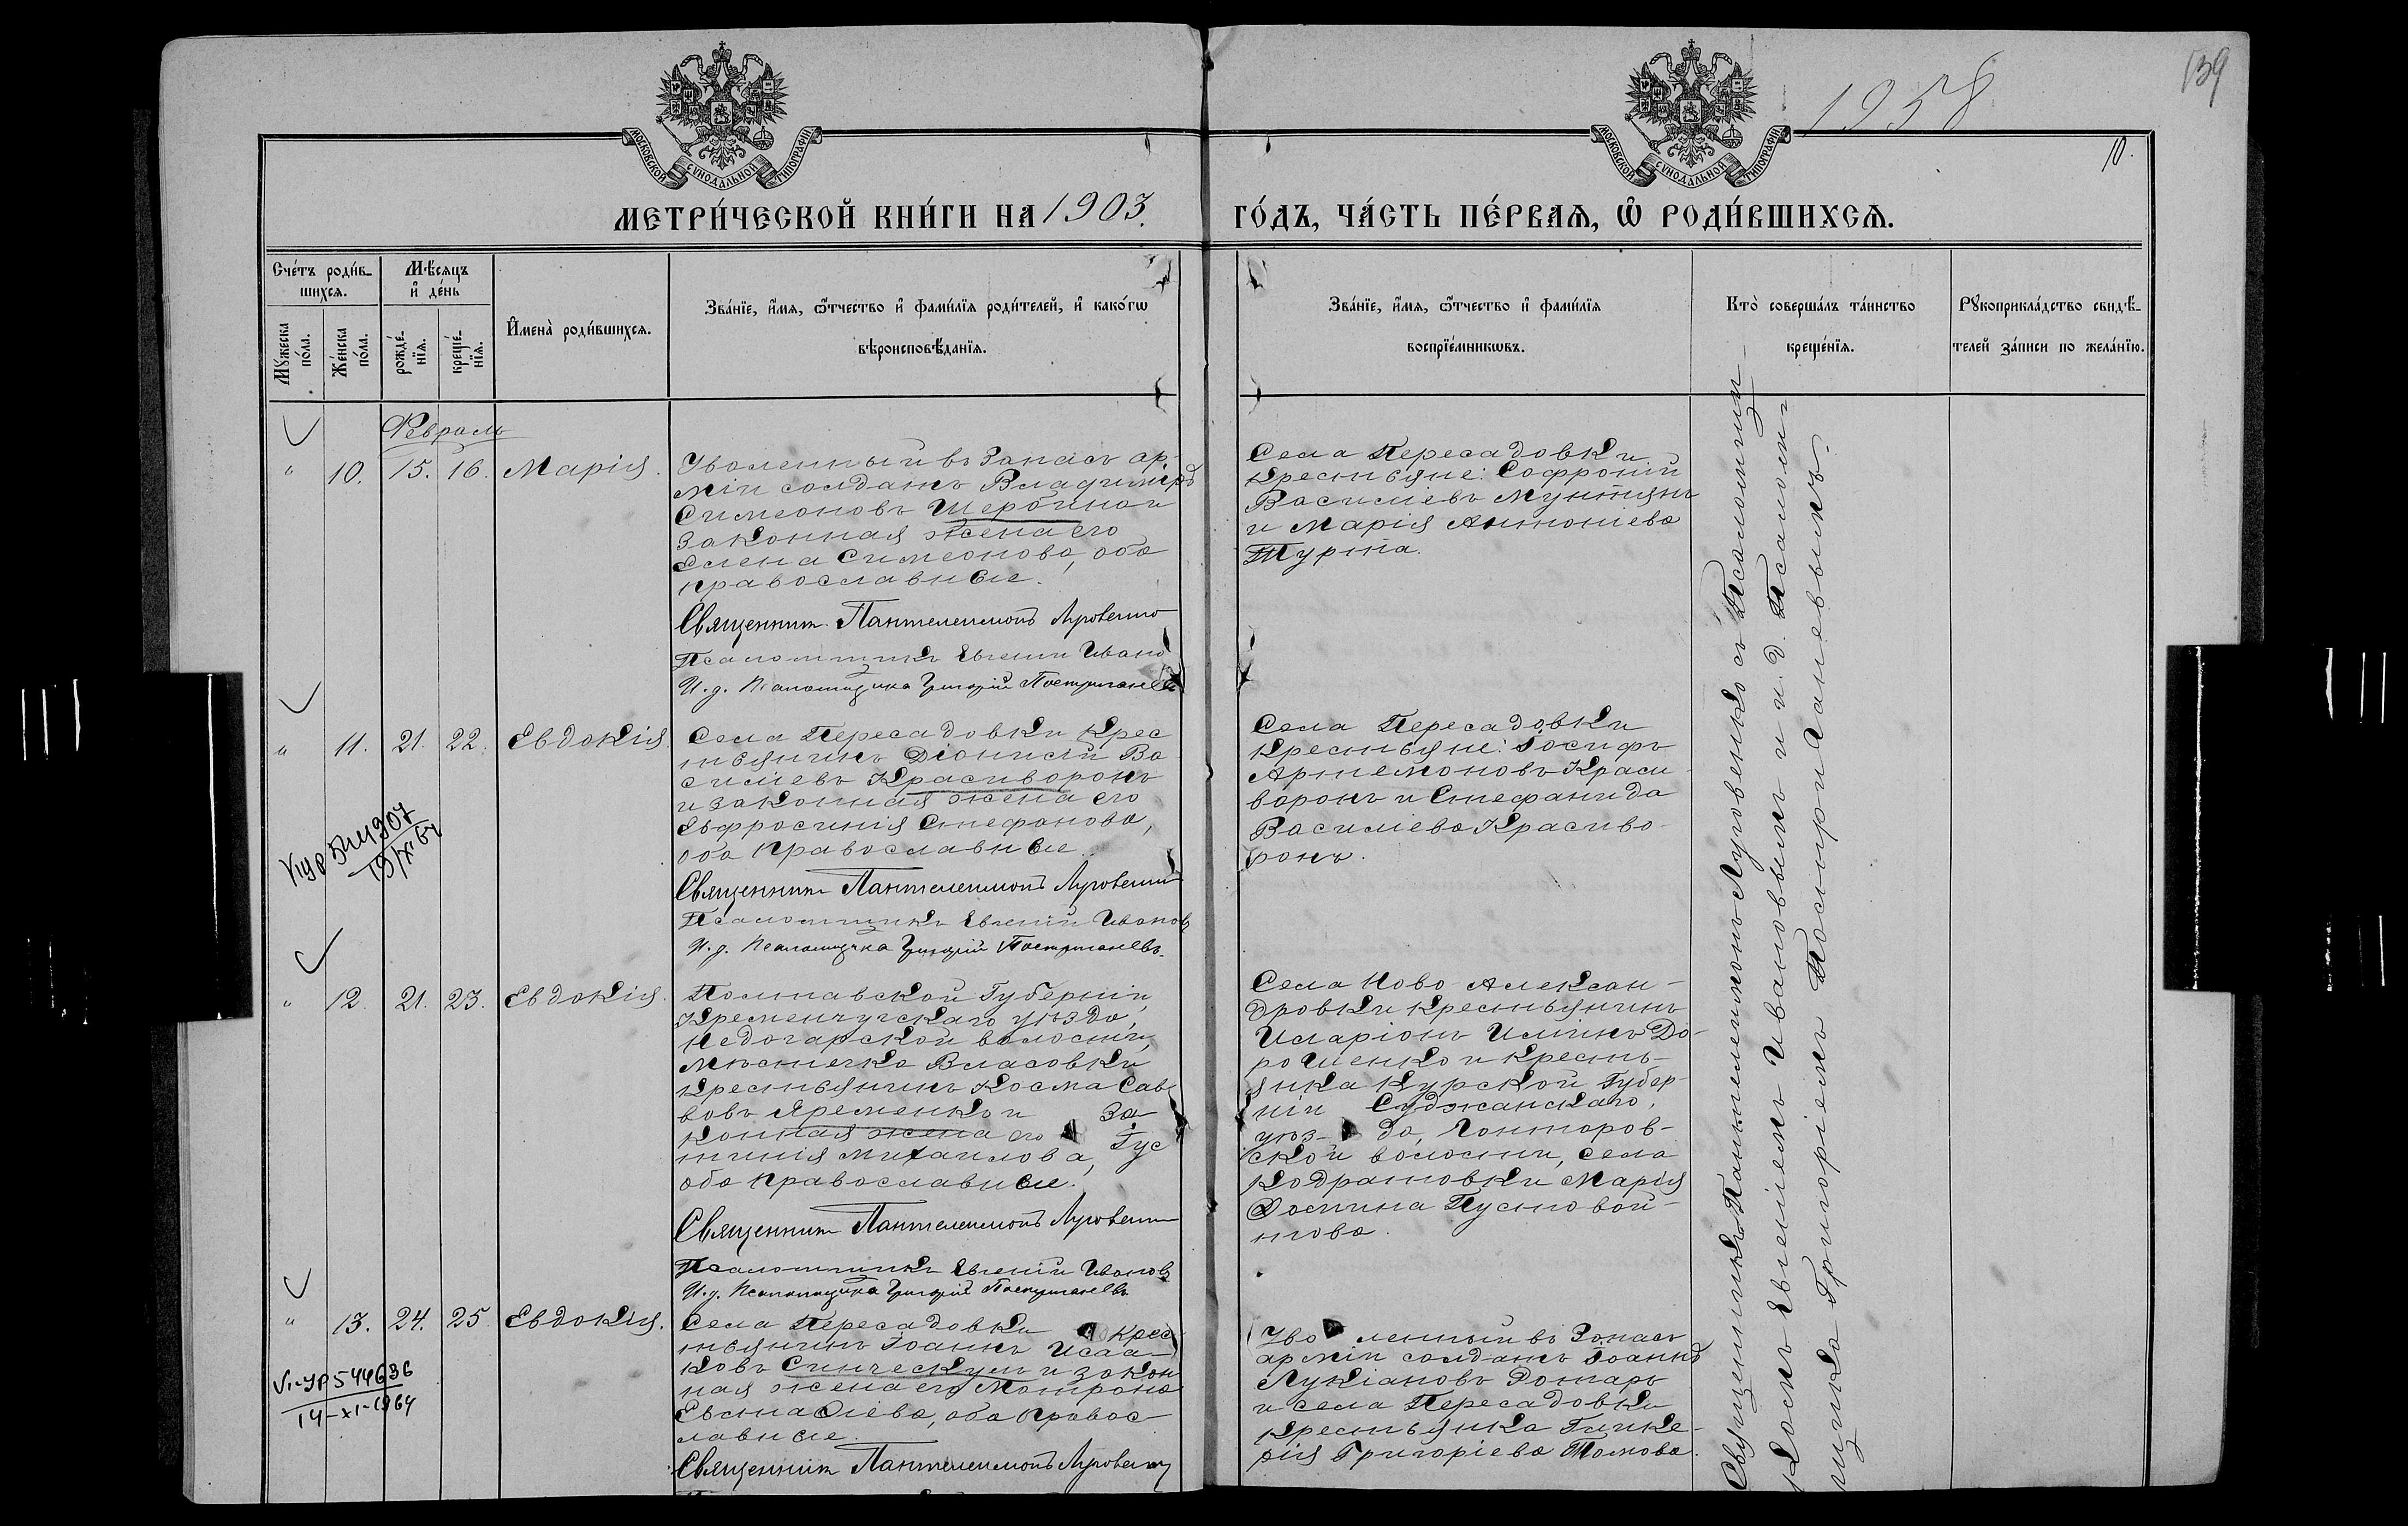 139
1958
10.
МОСКОВСКОЙ СѴНОДАЛЬНОЙ ТИПОГРАФІИ
МОСКОВСКОЙ СѴНОДАЛЬНОЙ ТИПОГРАФІИ
МЕТРИ́ЧЕСКОЙ КНИ́ГИ НА 1903.
ГО́ДЪ, ЧА́СТЬ ПЕ́РВАѦ, Ѽ РОДИ́ВШИХСѦ.
Сче́тъ роди́в-
шихсѧ.
Мꙋ́жеска
по́ла.
Же́нска
по́ла.
Мѣ́сѧцъ
и҆ де́нь
рожде́-
нїѧ.
креще́-
нїѧ.
И҆мена̀ роди́вшихсѧ.
Зва́нїе, и҆́мѧ, ѻ҆́тчество и҆ фами́лїѧ роди́телей, и҆ како́гѡ
вѣроисповѣ́данїѧ.
Зва́нїе, и҆́мѧ, ѻ҆́тчество и҆ фами́лїѧ
воспрїе́мникѡвъ.
Кто̀ соверша́лъ та́инство
креще́нїѧ.
Рꙋкоприкла́дство свидѣ́-
телей за́писи по жела́нїю.
Февраль
" 10. 15. 16. Марія.
Уволенный въ Запасъ ар-
міи солдатъ Владиміръ
Симеоновъ Щербина и
законная жена его
Елена Симеонова, оба
православные.
Священникъ Пантелеимонъ Луговенко
Псаломщикъ Евгеній Ивано
И. д. Псаломщика Григорій
Села Пересадовки
Крестьяне: Софроній
Василіевъ Мунтянъ
и Марія Антоніева
Турта.
" 11. 21. 22. Евдокія.
Села Пересадовки Крес
тьянинъ Діонисій Ва
силіевъ Красиворонъ
и законная жена его
Евфросинія Стефанова,
оба Православные.
Священникъ Пантелеимонъ Луговенко
Псаломщикъ Евгеній Ивановъ
И. д. Псаломщика Григорій
Села Пересадовки
Крестьяне: Іосифъ
Артемоновъ Краси
воронъ и Стефанида
Василіева Красиво-
ронъ.
19/XI 64
" 12. 21. 23. Евдокія.
Полтавской Губерніи,
Кременчугскаго уѣзда,
Недогарской волости,
Мѣстечка Власовки
Крестьянинъ Косма Сав
вовъ Яременко и За
конная жена его Іус
тинія Михаилова,
оба Православные.
Священникъ Пантелеимонъ Луговенко
Псаломщикъ Евгеній Ивановъ
И. д. Псаломщика Григорій
Села Ново Алексан-
дровки Крестьянинъ
Иларіонъ Илiинъ До-
рошенко и Кресть-
янка Курской Губер-
ніи Суджанскаго,
уѣз- да, Конторов-
ской волости, села
Кодратовки Марія
Пустовой-
това.
" 13. 24. 25 Евдокія.
Села Пересадовки Крес-
тьянинъ Іоаннъ Исаа-
ковъ и закон
ная жена его Матрона
Евстафіева, оба Правос-
лавные.
Священникъ Пантелеимонъ Луговенко
Уво ленный въ Запасъ
арміи солдатъ Іоаннъ
Лукіановъ Дотарь
и села Пересадовки
Крестьянка Глике-
рія Григоріева Томова.
V-УР 544636
14-XI-1964
Священникъ Пантелеимонъ Луговенко съ Псаломщи-
комъ Евгеніемъ Ивановымъ и и. д. Псалом-
щика Григоріемъ